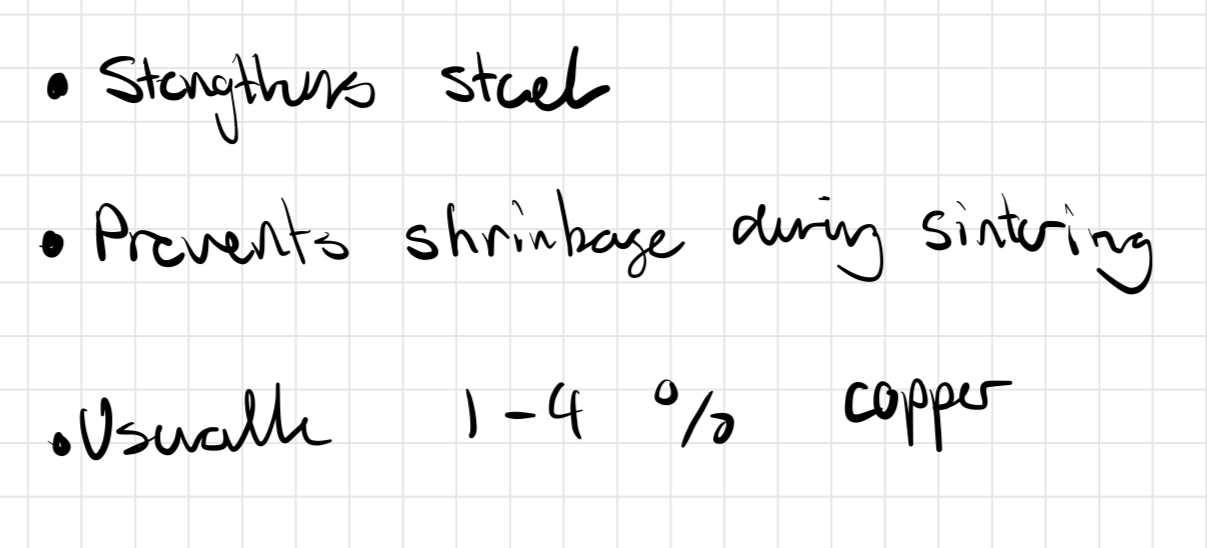 • Stengthens steel
• Prevents shrinkage during sintering
• Usualle 1-4 % copper